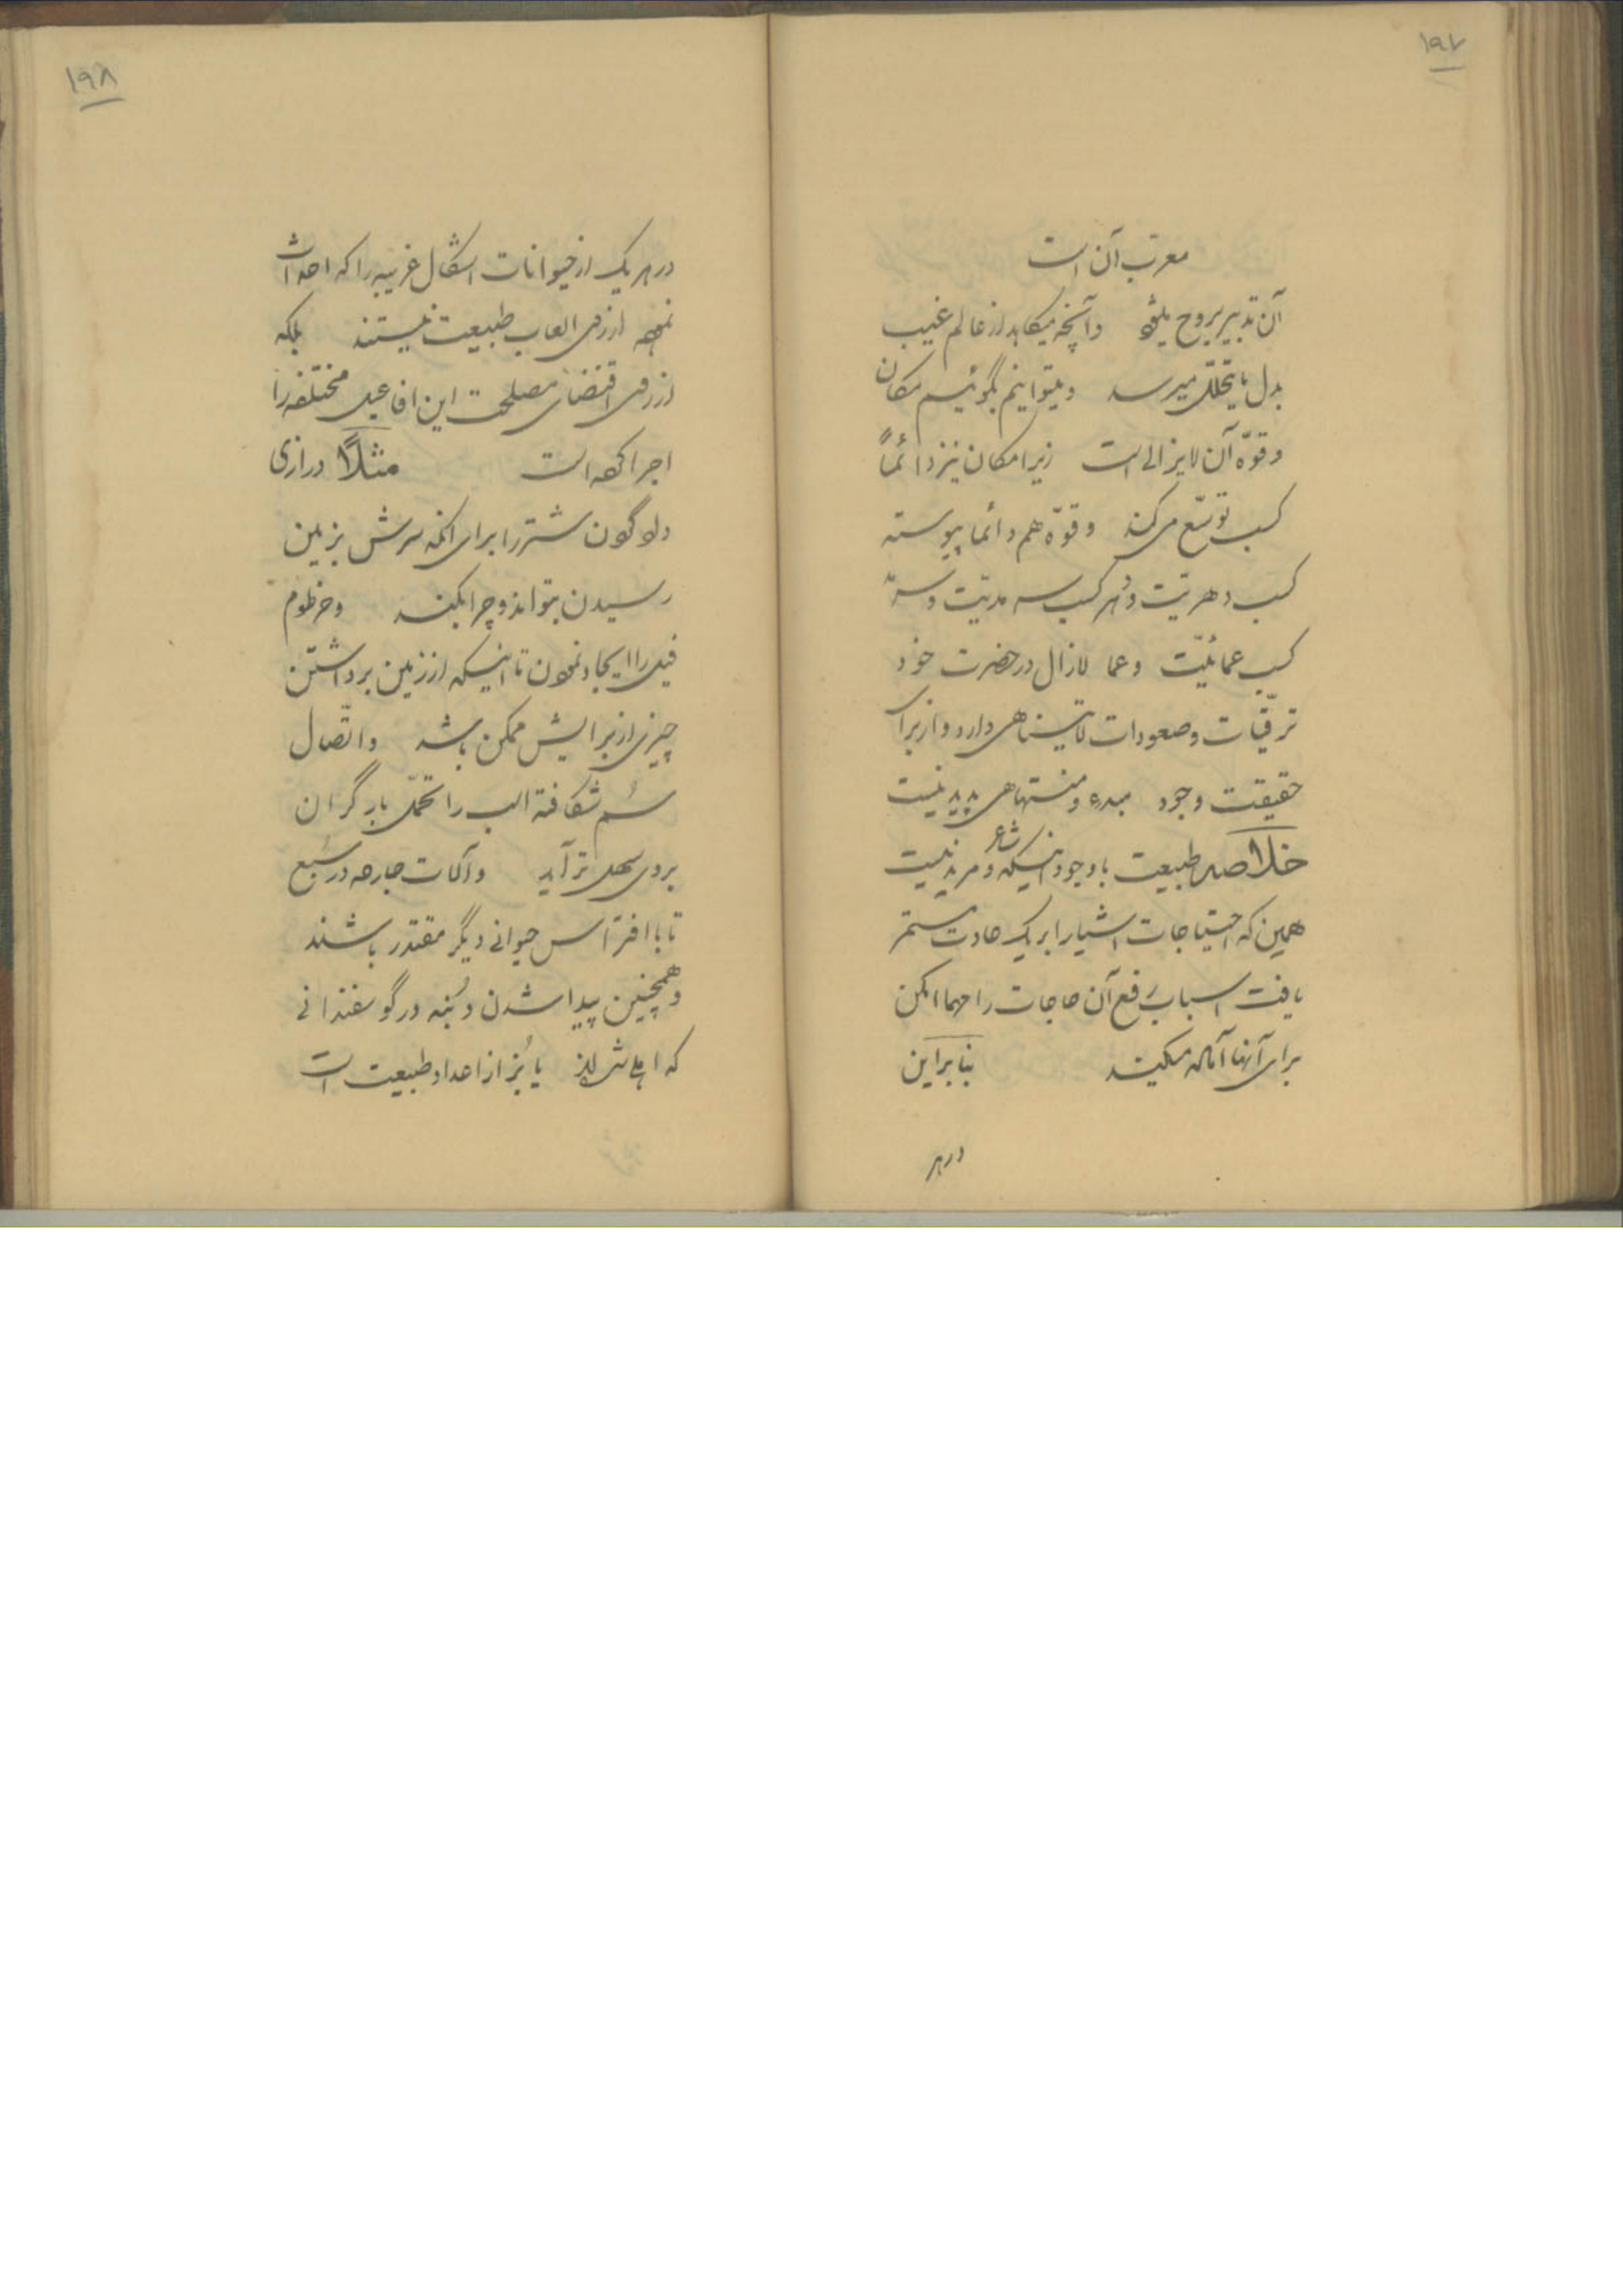 ۱۹۷
معرب آن است
آن تدبیر بروح میشود وآنچه میکاهد از عالم غیب
بدل مایتحلل میرسد ومیتوانیم بگوئیم مکان
وقوّه آن لایزالی است زیرا مکان نیز دائماً
کسب توسّع میکند وقوّه هم دائما پیوسته
کسب دهریّت ودهر کسب سرمدیّت و
کسب عمائیّت وعما لازال در حضرت خود
ترقّیات وصعودات لایتناهی دارد واز برای
حقیقت وجود مبدء ومنتهاهی پدید نیست
خلاصه طبیعت باوجود اینکه شاعر ومرید نیست
همین که احتیاجات اشیا را بریک عادت مستمر
یافت اسباب رفع آن حاجات را مهما امکن
برای آنها آماده میکند بنابراین
درهر
۱۹۸
درهر یک از حیوانات اشکال غریبه را که احداث
نموده از روی العاب طبیعت نیستند بلکه
از روی اقتضای مصلحت این افاعیل مختلفه را
اجرا کرده است مثلاً درازی
گردن شتر را برای آنکه سرش بزمین
رسیدن بتواند وچرا بکند وخرطوم
فیل را ایجاد نمودن تا اینکه از زمین برداشتن
چیزی از برایش ممکن باشد واتّصال
سُم شکافته اسب را تحمّل بار گران
بروی سهل تر آید وآلات جارحه در سبع
تا با افتراس حیوانی دیگر مقتدر باشند
وهمچنین پیدا شدن دُنبه در گوسفندانی
که از اعداد طبیعت است